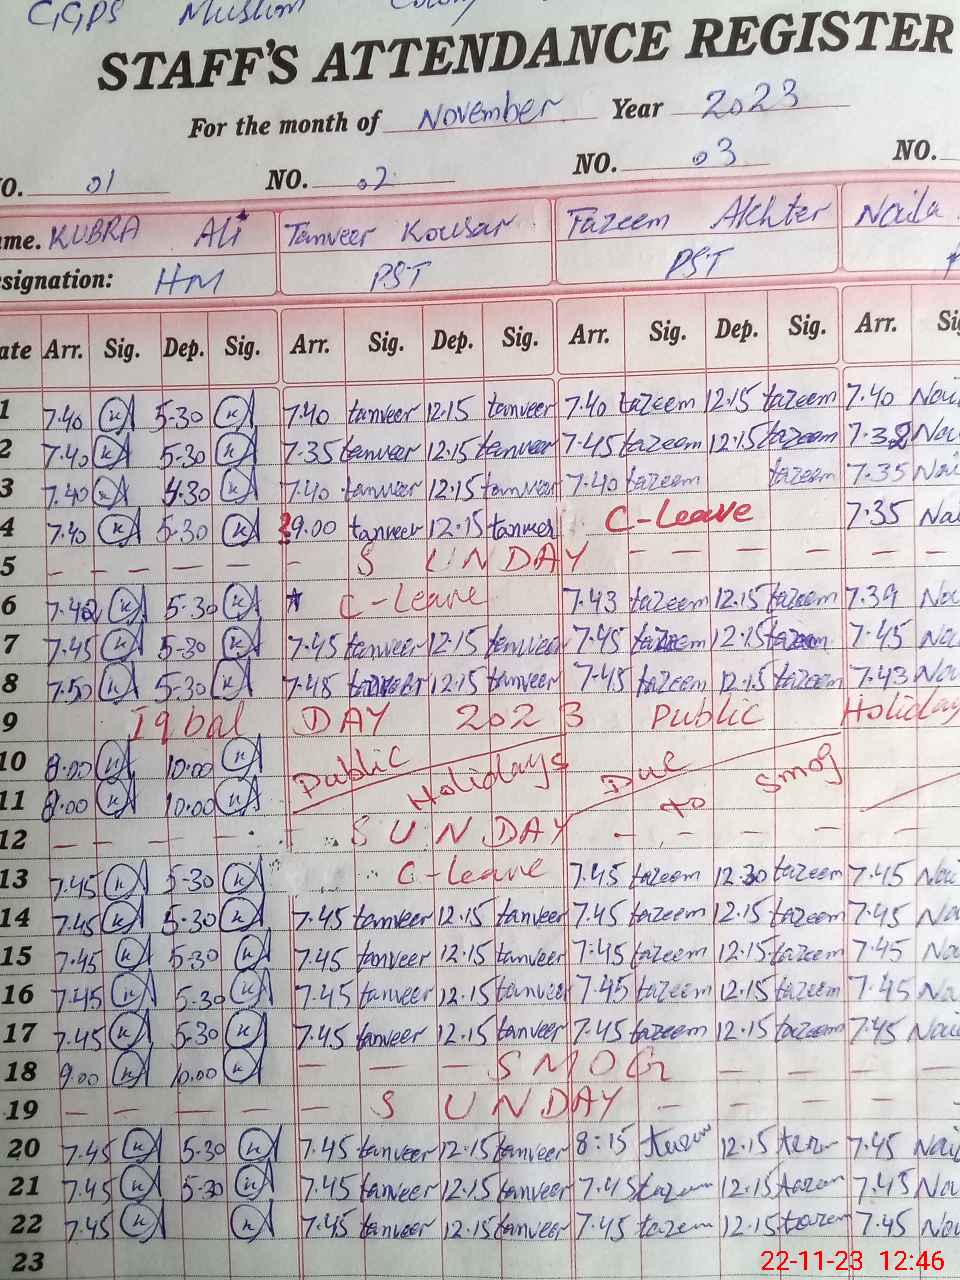 GGPS Muslim Colony
STAFF'S ATTENDANCE REGISTER
For the month of November Year 2023
NO. 01 NO. 02 NO. 03 NO.
Name. KUBRA Ali Tanveer Kousar Tazeem Akhter Naila
Designation: HM PST PST
Date Arr. Sig. Dep. Sig. Arr. Sig. Dep. Sig. Arr. Sig. Dep. Sig. Arr. Sig.
1 7.40 K 5-30 K 7.40 tanveer 12.15 tanveer 7.40 tazeem 12.15 tazeem 7.40 Nai
2 7.40 K 5-30 K 7.35 tanveer 12.15 tanveer 7.45 tazeem 12.15 tazeem Nai
3 7.40 K 4.30 K 7.40 tanveer 12.15 tanveer 7.40 tazeem tazeem 7.35 Nai
4 7.40 K 5-30 K 9.00 tanveer 12.15 tanveer C-Leave 7.35 Nai
5 - - - - - SUNDAY - - - - -
6 K 5.30 K C-Leave 7.43 tazeem 12.15 tazeem 7.39 Na
7 7.45 K 5-30 K 7.45 tanveer 12.15 tanveer 7.45 tazeem 12.15 tazeem 7.45 Na
8 7.50 K 5-30 K 7.48 tanveer 12.15 tanveer 7.45 tazeem 12.15 tazeem 7.43 Na
9 Iqbal DAY 2023 Public Holiday
10 8.00 K 10.00 K Public Holidays Due to Smog
11 8.00 K 10.00 K
12 - - - - - SUNDAY - - - - -
13 7.45 K 5-30 K C-Leave 7.45 tazeem 12.30 tazeem 7.45 Nai
14 7.45 K 5.30 K 7.45 tanveer 12.15 tanveer 7.45 tazeem 12.15 tazeem 7.45 Na
15 7.45 K 5-30 K 7.45 tanveer 12.15 tanveer 7.45 tazeem 12.15 tazeem 7.45 Na
16 7.45 K 5-30 K 7.45 tanveer 12.15 tanveer 7.45 tazeem 12.15 tazeem 7.45 Na
17 7.45 K 5.30 K 7.45 tanveer 12.15 tanveer 7.45 tazeem 12.15 tazeem 7.45 Nai
18 9.00 K 10.00 K - - - SMOG - - - -
19 - - - - - SUNDAY - - - - -
20 7.45 K 5-30 K 7.45 tanveer 12.15 tanveer 8:15 12.15 7.45 Nai
21 7.45 K 5-30 K 7.45 tanveer 12.15 tanveer 7.45 tazeem 12.15 tazeem 7.45 Na
22 7.45 K K 7.45 tanveer 12.15 tanveer 7.45 tazeem 12.15 tazeem 7.45 Na
23
22-11-23 12:46